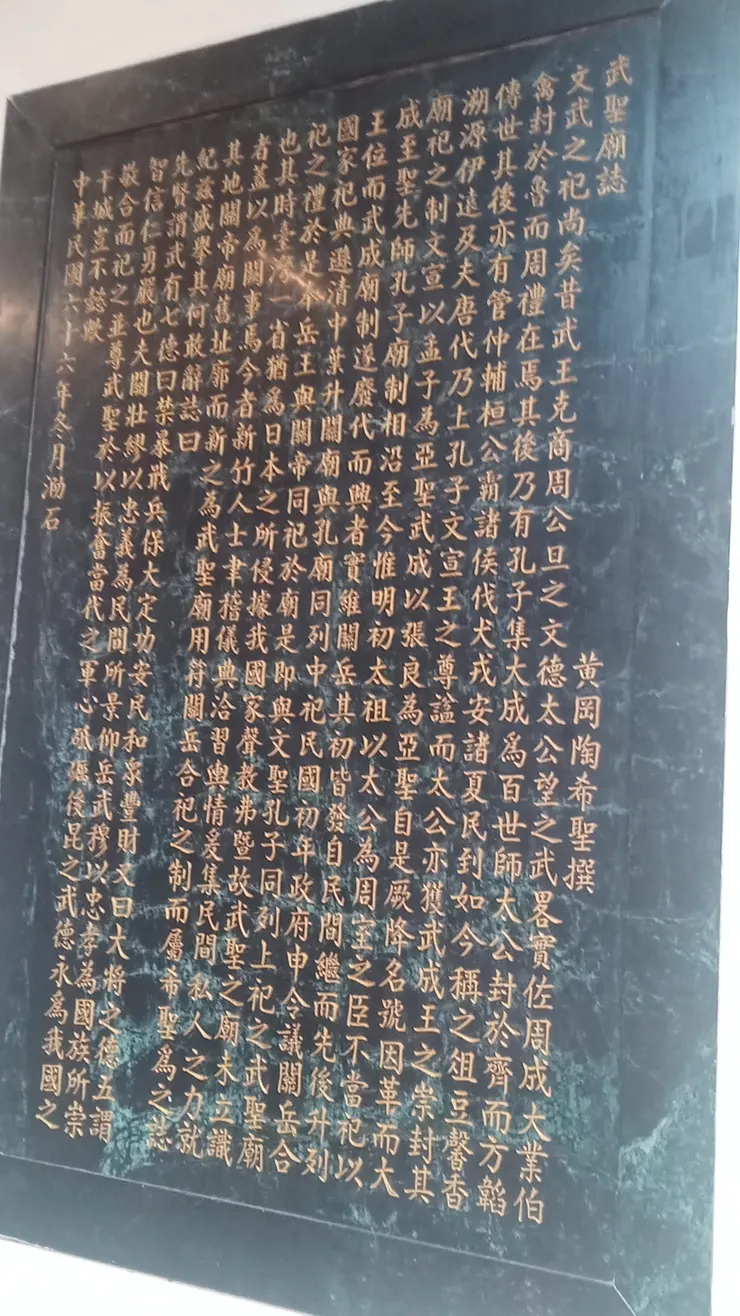 武聖廟誌
黃岡陶希聖撰
文武之祀尚矣昔武王克商周公旦之文德太公望之武畧實佐周成大業伯
禽封於魯而周禮在焉其後乃有孔子集大成為百世師太公封於齊而方韜
傳世其後亦有管仲輔桓公霸諸侯伐犬戎安諸夏民到如今稱之俎豆馨香
溯源伊遠及夫唐代乃上孔子文宣王之尊諡而太公亦獲武成王之崇封其
廟祀之制文宣以孟子為亞聖武成以張良為亞聖自是厥降名號因革而大
成至聖先師孔子廟制相沿至今惟明初太祖以太公為周室之臣不當祀以
王位而武成廟制遂廢代而興者實維關岳其初皆發自民間繼而先後升列
國家祀典遜清中葉升關廟與孔廟同列中祀民國初年政府申令議關岳合
祀之禮於是奉岳王與關帝同祀於廟是即與文聖孔子同列上祀之武聖廟
也其時臺灣一省猶為日本之所侵據我國家聲教弗暨故武聖之廟未立識
者蓋以為闕事焉今者新竹人士聿稽儀典洽習輿情爰集民間私人之力就
其地關帝廟舊址廓而新之為武聖廟用符關岳合祀之制而屬希聖為之誌
紀茲盛舉其何敢辭誌曰
先賢謂武有七德曰禁暴戢兵保大定功安民和衆豐財又曰大將之德五謂
智信仁勇嚴也夫關壯繆以忠義為民間所景仰岳武穆以忠孝為國族所崇
敬合而祀之並尊武聖於以振奮當代之軍心砥礪後昆之武德永為我國之
干城豈不懿歟
中華民國六十六年冬月泐石